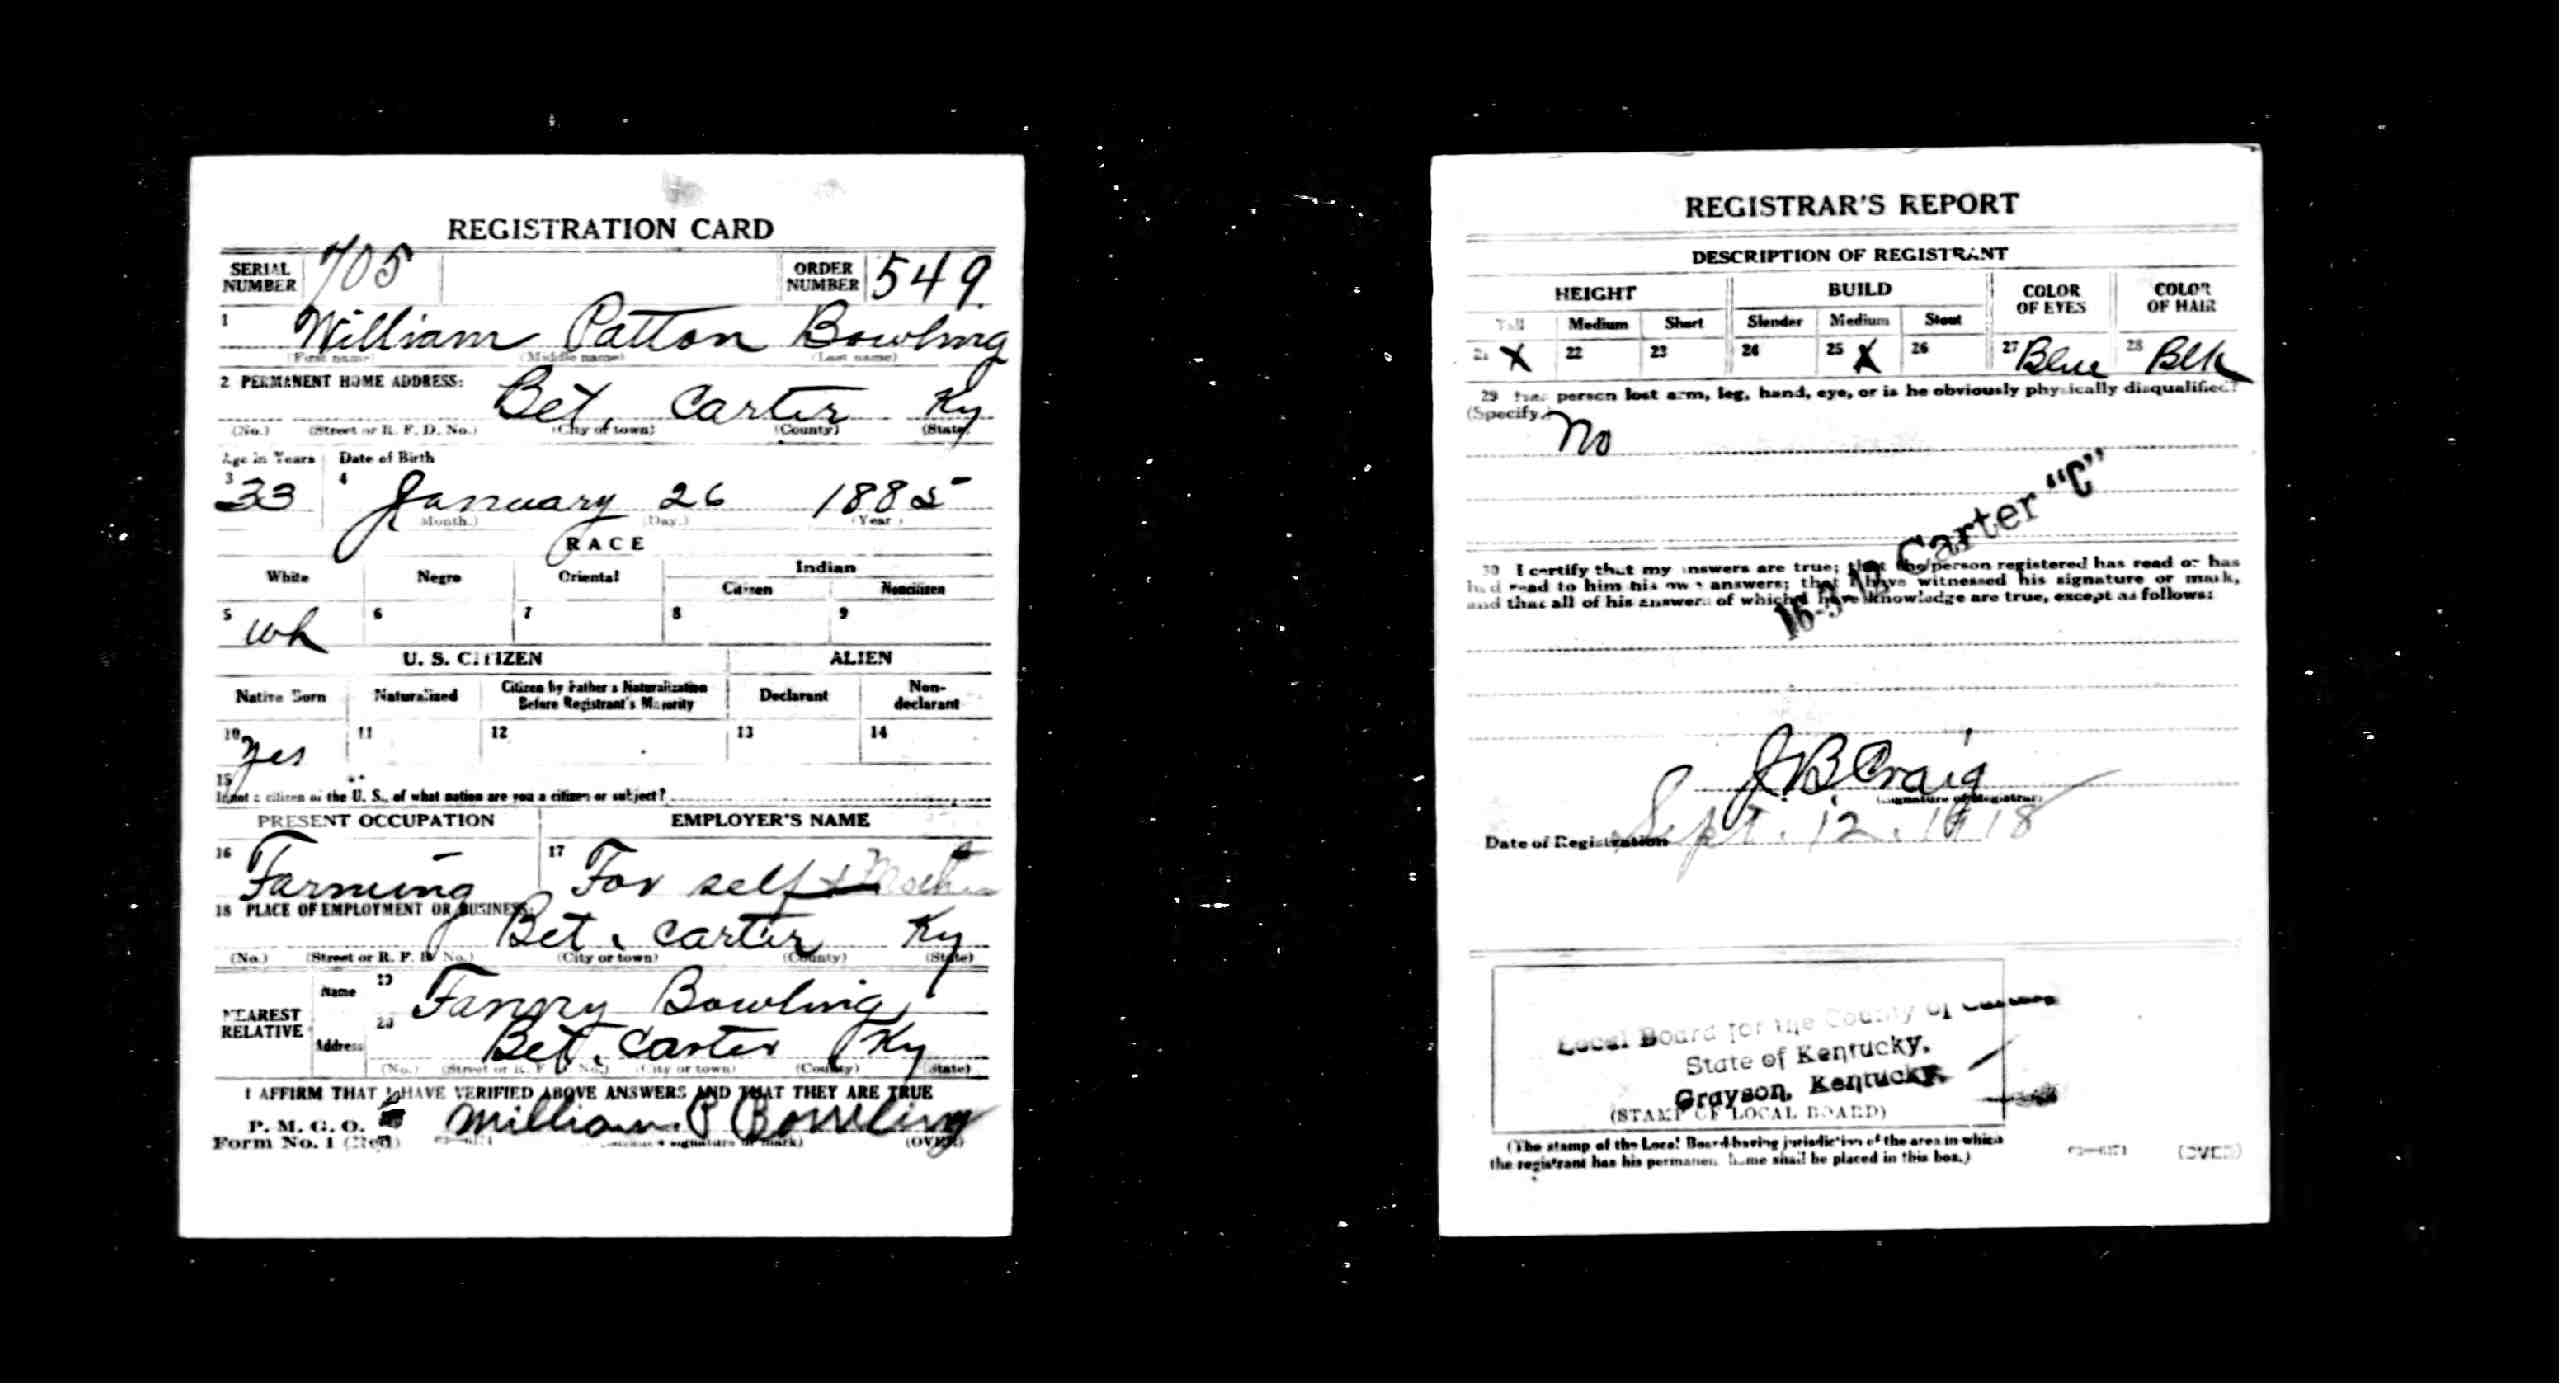 REGISTRATION CARD
SERIAL NUMBER 705 ORDER NUMBER 549
1 William Patton Bowling
(First name) (Middle name) (Last name)
2 PERMANENT HOME ADDRESS:
Bet, Carter Ky
(No.) (Street or R. F. D. No.) (City or town) (County) (State)
Age in Years Date of Birth
3 33 4 January 26 1885
(Month.) (Day.) (Year)
RACE
White Negro Oriental Indian
Citizen Noncitizen
5 Wh 6 7 8 9
U. S. CITIZEN ALIEN
Native Born Naturalized Citizen by Father's Naturalization Before Registrant's Majority Declarant Non-declarant
10 Yes 11 12 13 14
15
If not a citizen of the U. S., of what nation are you a citizen or subject?
PRESENT OCCUPATION EMPLOYER'S NAME
16 Farming 17 For self & Mother
18 PLACE OF EMPLOYMENT OR BUSINESS:
Bet, Carter Ky
(No.) (Street or R. F. D. No.) (City or town) (County) (State)
NEAREST RELATIVE
Name 19 Fannry Bowling
Address 20 Bet, Carter Ky
(No.) (Street or R. F. D. No.) (City or town) (County) (State)
I AFFIRM THAT I HAVE VERIFIED ABOVE ANSWERS AND THAT THEY ARE TRUE
P. M. G. O.
Form No. 1 (Red) William P Bowling
(Registrant's signature or mark) (OVER)
REGISTRAR'S REPORT
DESCRIPTION OF REGISTRANT
HEIGHT BUILD COLOR OF EYES COLOR OF HAIR
Tall Medium Short Slender Medium Stout
21 X 22 23 24 25 X 26 27 Blue 28 Blk
29 Has person lost arm, leg, hand, eye, or is he obviously physically disqualified?
(Specify.)
No
16-3-12 Carter "C"
30 I certify that my answers are true; that the person registered has read or has
had read to him his own answers; that I have witnessed his signature or mark,
and that all of his answers of which I have knowledge are true, except as follows:
J B Craig
(Signature of Registrar)
Date of Registration Sept. 12, 1918
Local Board for the County of Carter
State of Kentucky,
Grayson, Kentucky.
(STAMP OF LOCAL BOARD)
(The stamp of the Local Board having jurisdiction of the area in which
the registrant has his permanent home shall be placed in this box.)
(OVER)